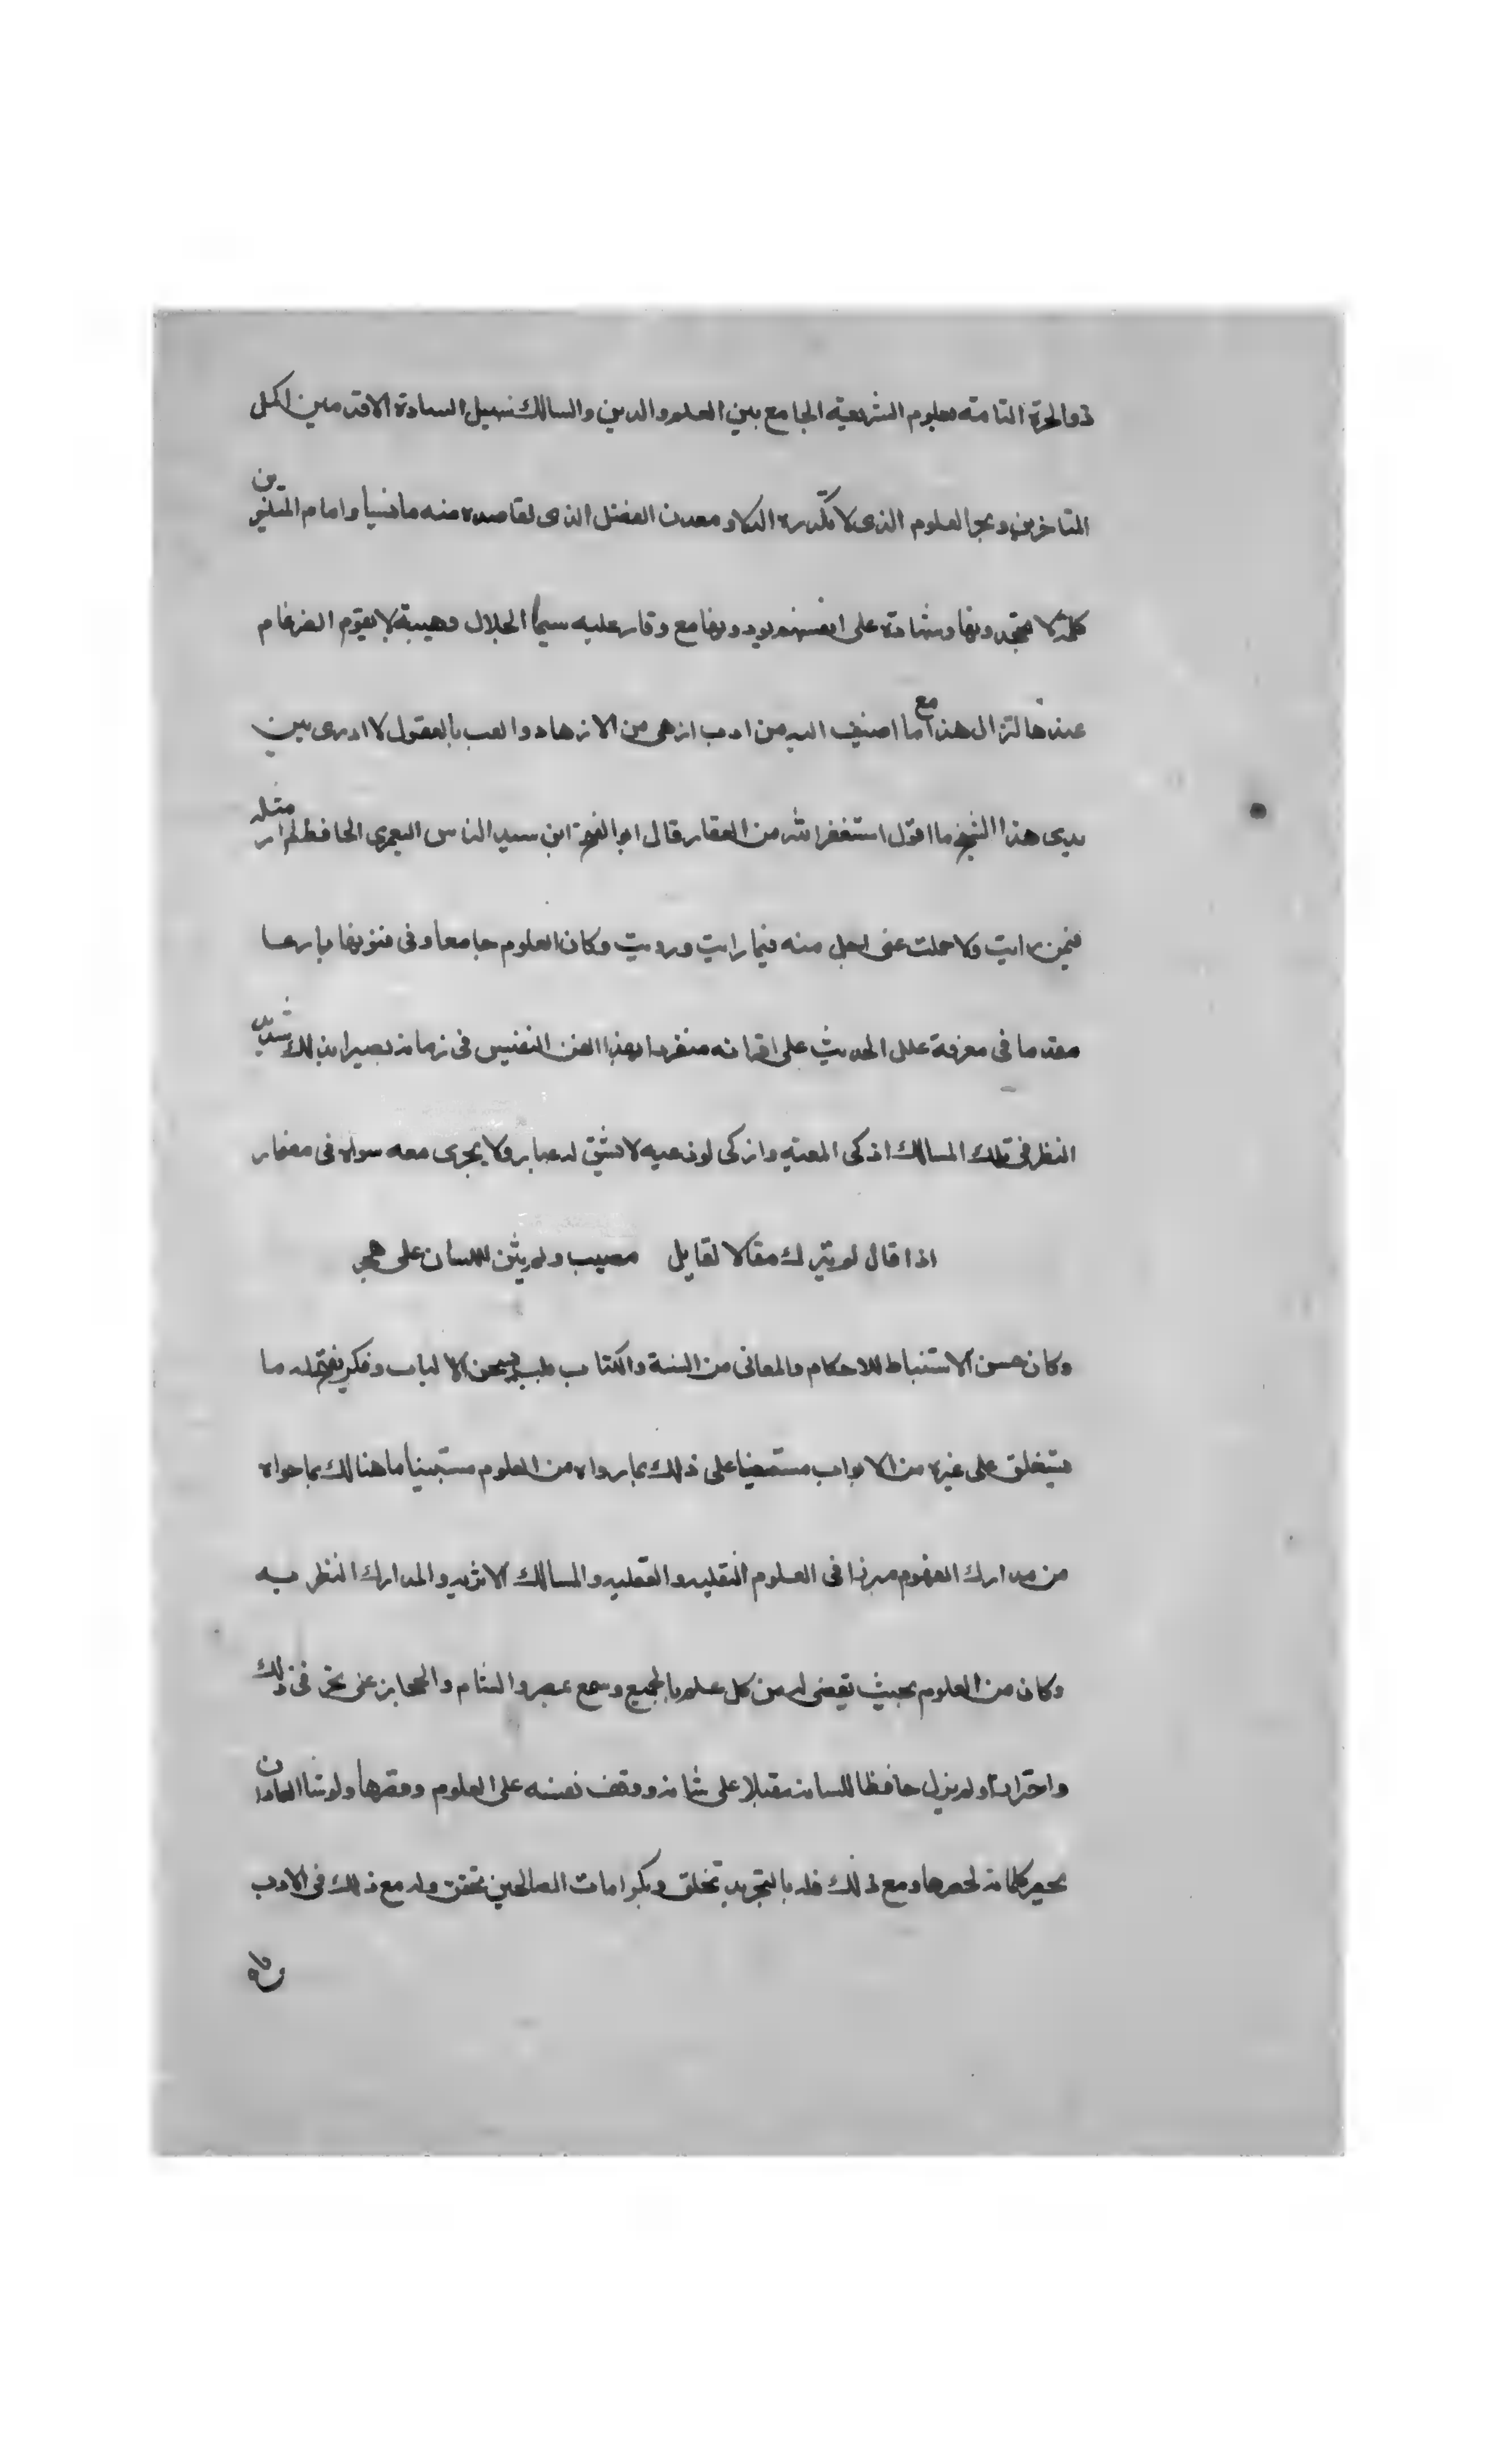 ذو الخبرة التامة بعلوم الشريعة الجامع بين العلم والدين والسالك سبيل السادة الاقدمين اكمل
المتاخرين وبحر العلوم الذى لا تكدره الدلا ومعدن الفضل الذى لقاصده منه ما فشيا وامام المتاخرين
كلمة لا يجحدونها وشهادة على انفسهم يودونها مع وقار عليه سيما الجلال وهيبة لا يقوم الضرغام
عندها لنزال هذا مع ما اضيف اليه من ادب ازهى من الازهار والعب بالعقول لا ادرى بين
يدى هذا الشيخ ما اقول استغفر الله من العقار قال ابو الفتح ابن سيد الناس اليعمرى الحافظ لم ار مثله
فيمن رايت ولا حملت عنى اجل منه فيما رايت ورويت وكان للعلوم جامعا وفى فنونها بارعا
مقدما فى معرفة علل الحديث على اقرانه منفردا بهذا الفن النفيس فى زمانه بصيرا بذلك شديد
النظر فى تلك المسالك اذكى المعيه وازكى لوذعيه لا يشق له غبار ولا يجرى معه سواه فى مضمار
اذا قال لم يترك مقالا لقايل مصيب ولم يثن اللسان على هجر
وكان حسن الاستنباط للاحكام والمعانى من السنة والكتاب بلب يسحر الالباب وفكر يفتح له ما
يستغلق على غيره من الابواب مستعينا على ذلك بما رواه من العلوم مستبينا ما هنالك بما حواه
من مدارك الفهوم مبرزا فى العلوم النقليه والعقليه والمسالك الاثريه والمدارك النظريه
وكان من العلوم بحيث يقضى له من كل علم بالجميع وسمع بمصر والشام والحجاز على تحر فى ذلك
واحتراز ولم يزل حافظا للسانه مقبلا على شانه ووقف نفسه على العلوم وقصرها ولو شا العادان
يحصر كلماته لحصرها ومع ذلك فله بالتجريد تخلق وبكرامات الصالحين تحقق وله مع ذلك فى الادب